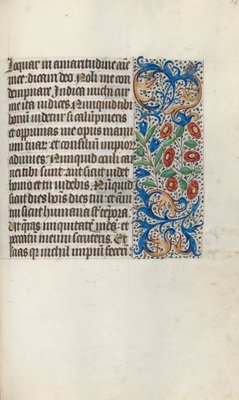 loquar in amaritudine aīe
mee. dicam deo Noli me con
dempnare. Indica michi cur
me ita iudices Nunquid tibi
bonū videtur si calūpnieris
et opprimas me opus manu
um tuar. et consiliū impior
adiuues. Nunquid oculi car
nei tibi sunt. aut sicut videt
homo et tu videbis. Nūquid
sicut dies hoīs dies tui. et anni
tui sicut humana sūt tēpora.
Ut queras iniquitatē meā. et
peccatū meum scruteris. Et
scias quia nichil impiū fecerī